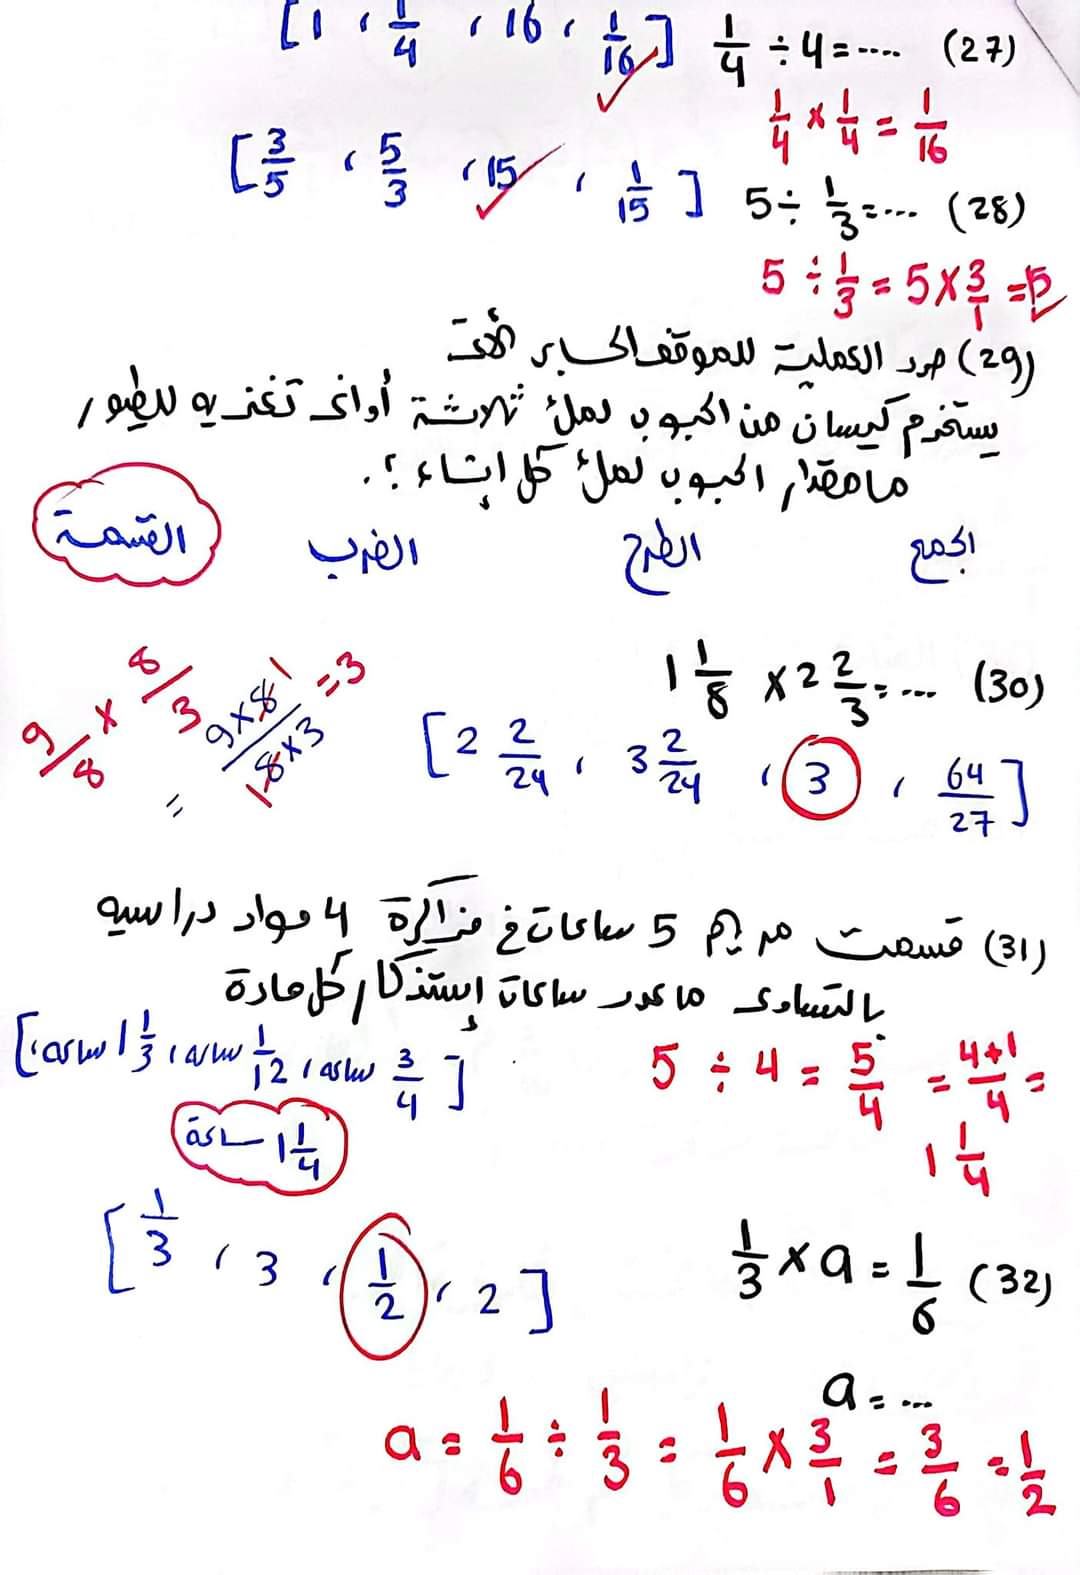 (27) 1/4 ÷ 4 = .... [1 ، 1/4 ، 16 ، 1/16]
1/4 × 1/4 = 1/16
(28) 5 ÷ 1/3 = .... [3/5 ، 5/3 ، 15 ، 1/15]
5 ÷ 1/3 = 5 × 3/1 = 15
(29) حدد العملية للموقف الحسابى الأتى
يستخدم كيسان من الحبوب لملئ ثلاثة أوانى تغذيه للطيور
ما مقدار الحبوب لملئ كل إناء ؟.
الجمع الطرح الضرب القسمة
(30) 1 1/8 × 2 2/3 = ....
[2 2/24 ، 3 2/24 ، 3 ، 64/27]
9/8 × 8/3
= 9×8/8×3 = 3
1
1
(31) قسمت مريم 5 ساعات فى مذاكرة 4 مواد دراسيه
بالتساوى ما عدد ساعات إستذكار كل مادة
[1 1/3 ساعه ، 1/12 ساعه ، 3/4 ساعه]
1 1/4 ساعة
5 ÷ 4 = 5/4 = 4+1/4 =
1 1/4
(32) 1/3 × a = 1/6
[1/3 ، 3 ، 1/2 ، 2]
a = ....
a = 1/6 ÷ 1/3 = 1/6 × 3/1 = 3/6 = 1/2